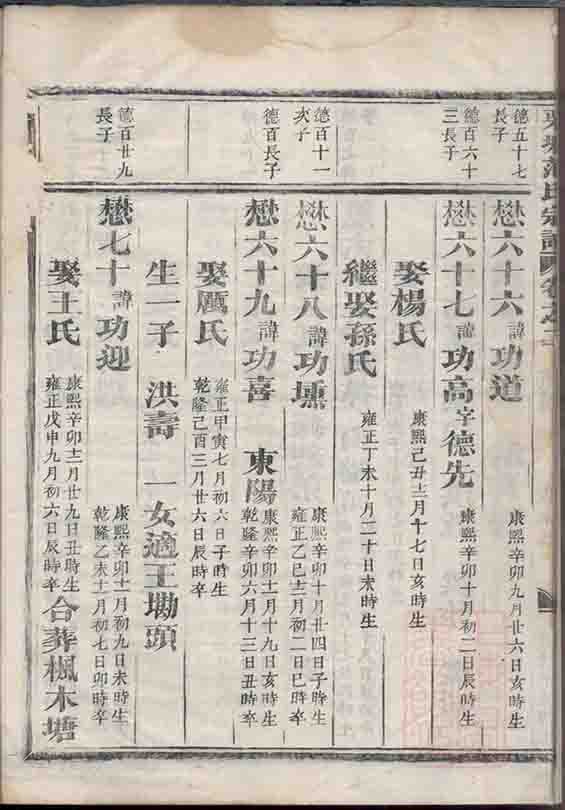 德五十七
長子
懋六十六諱功道
康熙辛卯九月廿六日亥時生
德百六十
三長子
懋六十七諱功高字德先
康熙辛卯十月初二日辰時生
娶楊氏
康熙己丑十二月十七日亥時生
繼娶孫氏
雍正丁未十月二十日未時生
德百十一
次子
懋六十八諱功壎
康熙辛卯十月廿四日子時生
雍正乙巳十二月初二日巳時卒
德百長子
懋六十九諱功喜 東陽
康熙辛卯十一月十九日亥時生
乾隆辛卯六月十三日丑時卒
娶厲氏
雍正甲寅七月初六日子時生
乾隆己酉三月廿六日辰時卒
生一子 洪壽 一女適王坳頭
德百廿九
長子
懋七十諱功迎
康熙辛卯十二月初九日未時生
乾隆乙未十一月初七日卯時卒
娶王氏
康熙辛卯十二月廿九日丑時生
雍正戊申九月初六日辰時卒
合葬楓木塘